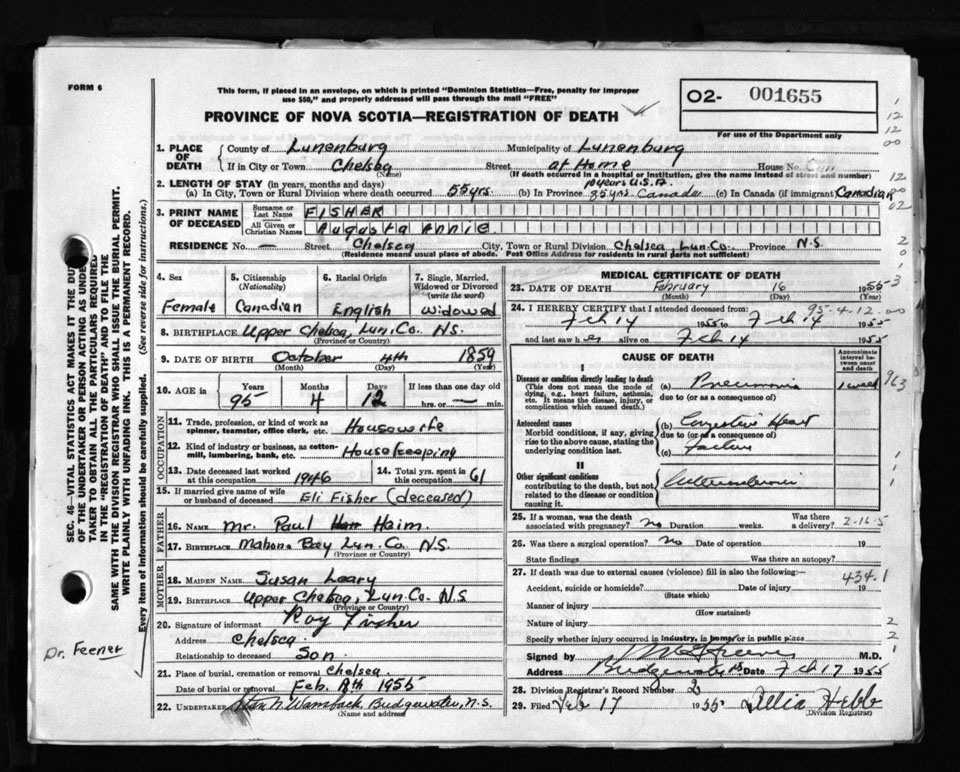 FORM 6
This form, if placed in an envelope, on which is printed "Dominion Statistics—Free, penalty for improper
use $50," and properly addressed will pass through the mail "FREE"
PROVINCE OF NOVA SCOTIA—REGISTRATION OF DEATH
02- 001655
For use of the Department only
1. PLACE OF DEATH
County of Lunenburg Municipality of Lunenburg
If in City or Town Chelsea (Name) Street at Home House No.
(If death occurred in a hospital or institution, give the name instead of street and number)
2. LENGTH OF STAY (in years, months and days) 10 years U.S.A.
(a) In City, Town or Rural Division where death occurred 55 yrs. (b) In Province 85 yrs. Canada (c) In Canada (if immigrant) Canadian
3. PRINT NAME OF DECEASED
Surname or Last Name FISHER
All Given or Christian Names Augusta Annie
RESIDENCE No. — Street Chelsea City, Town or Rural Division Chelsea, Lun. Co. Province N.S.
(Residence means usual place of abode. Post Office Address for residents in rural parts not sufficient)
4. Sex Female
5. Citizenship (Nationality) Canadian
6. Racial Origin English
7. Single, Married, Widowed or Divorced (write the word) Widowed
8. BIRTHPLACE Upper Chelsea, Lun. Co. N.S.
(Province or Country)
9. DATE OF BIRTH October 4th 1859
(Month) (Day) (Year)
10. AGE in Years 95 Months 4 Days 12 If less than one day old hrs. or — min.
OCCUPATION
11. Trade, profession, or kind of work as spinner, teamster, office clerk, etc. Housewife
12. Kind of industry or business, as cotton-mill, lumbering, bank, etc. Housekeeping
13. Date deceased last worked at this occupation 1946
14. Total yrs. spent in this occupation 61
15. If married give name of wife or husband of deceased Eli Fisher (deceased)
FATHER
16. NAME Mr. Paul Haim
17. BIRTHPLACE Mahone Bay Lun. Co. N.S.
(Province or Country)
MOTHER
18. MAIDEN NAME Susan Leary
19. BIRTHPLACE Upper Chelsea, Lun. Co. N.S
(Province or Country)
20. Signature of informant Roy Fisher
Address Chelsea
Relationship to deceased Son
21. Place of burial, cremation or removal Chelsea
Date of burial or removal Feb. 1955
22. UNDERTAKER Wamback Bridgewater, N.S.
(Name and address)
MEDICAL CERTIFICATE OF DEATH
23. DATE OF DEATH February 16 1955
(Month) (Day) (Year)
24. I HEREBY CERTIFY that I attended deceased from: 95-4-12
Feb 14 1955 to Feb 14 1955
and last saw her alive on Feb 14 1955
CAUSE OF DEATH
Approximate interval between onset and death
I
Disease or condition directly leading to death
(This does not mean the mode of dying, e.g., heart failure, asthenia, etc. It means the disease, injury, or complication which caused death.)
(a) Pneumonia 1 week
due to (or as a consequence of)
Antecedent causes
Morbid conditions, if any, giving rise to the above cause, stating the underlying condition last.
(b) Congestive Heart
due to (or as a consequence of)
(c) Failure
II
Other significant conditions
contributing to the death, but not related to the disease or condition causing it.
25. If a woman, was the death associated with pregnancy? No Duration weeks. Was there a delivery?
26. Was there surgical operation? No Date of operation 19
State findings Was there an autopsy?
27. If death was due to external causes (violence) fill in also the following:— 434.1
Accident, suicide or homicide? Date of injury 19
(State which)
Manner of injury
(How sustained)
Nature of injury
Specify whether injury occurred in industry, in home, or in public place
Signed by M.D.
Address Bridgewater NS Date Feb 17 1955
28. Division Registrar's Record Number 2
29. Filed Feb 17 1955 Hebb
(Division Registrar)
SEC. 46—VITAL STATISTICS ACT MAKES IT THE DUTY
OF THE UNDERTAKER OR PERSON ACTING AS UNDER-
TAKER TO OBTAIN ALL THE PARTICULARS REQUIRED
IN THE "REGISTRATION OF DEATH" AND TO FILE THE
SAME WITH THE DIVISION REGISTRAR WHO SHALL ISSUE THE BURIAL PERMIT.
WRITE PLAINLY WITH UNFADING INK. THIS IS A PERMANENT RECORD.
Every item of information should be carefully supplied. (See reverse side for instructions.)
Dr. Feener